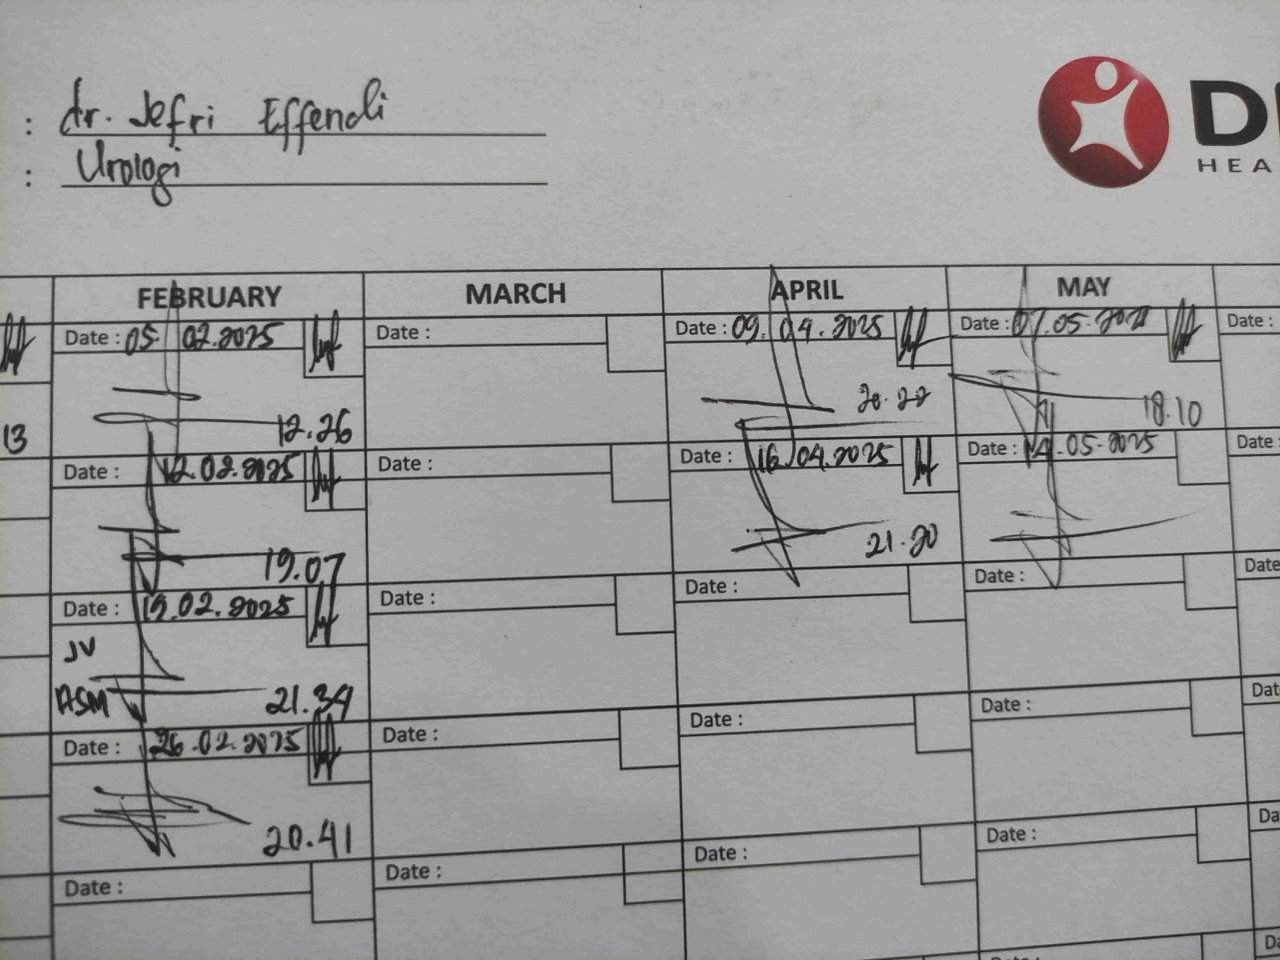 : dr. Jefri Effendi
: Urologi
HEA
FEBRUARY MARCH APRIL MAY
Date : 05.02.2025 Date : Date : 09.04.2025 Date : 07.05. Date :
13 12.26 20.22 18.10
Date : 12.02.2025 Date : Date : 16.04.2025 Date : 14.05.2025 Date :
19.07 21.20
Date : 19.02.2025 Date : Date : Date : Date
JV
ASM 21.34
Date : 26.02.2025 Date : Date : Date : Dat
20.41
Date : Date : Date : Date : Da
Date :